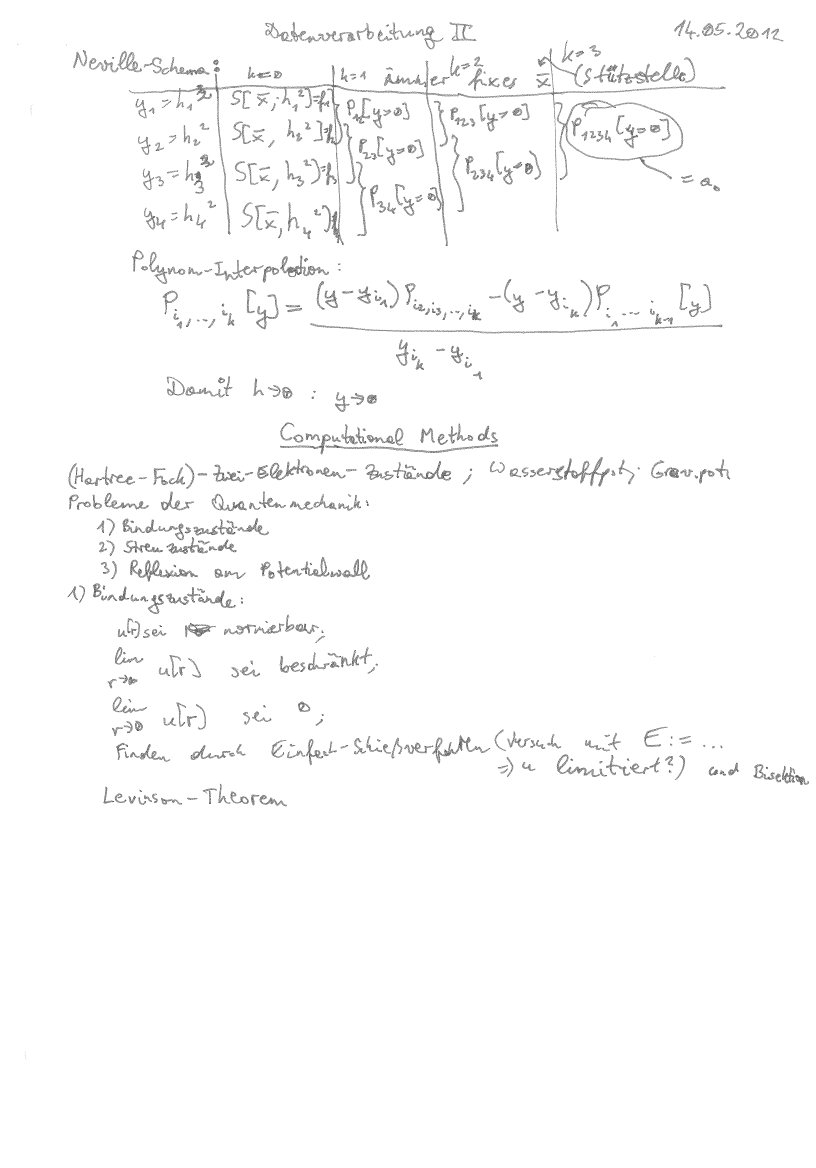 Datenverarbeitung II 14.05.2012
Neville-Schema: k=0 k=1 immer k=2 fixes x̄ k=3 (Stützstelle)
y₁=h₁² S[x̄,h₁²]=f₁ P₁₂[y=0] P₁₂₃[y=0] P₁₂₃₄[y=0]
y₂=h₂² S[x̄,h₂²]=f₂ P₂₃[y=0] P₂₃₄[y=0] = a₀
y₃=h₃² S[x̄,h₃²]=f₃ P₃₄[y=0]
y₄=h₄² S[x̄,h₄²]
Polynom-Interpolation:
P_{i₁,..,i_k}[y] = ((y-y_{i₁})P_{i₂,i₃,..,i_k} - (y-y_{i_k})P_{i₁...i_{k-1}}[y]) / (y_{i_k} - y_{i₁})
Damit h→0 : y→0
Computational Methods
(Hartree-Fock)-Zwei-Elektronen-Zustände ; Wasserstoffpot; Grav.pot;
Probleme der Quantenmechanik:
1) Bindungszustände
2) Streuzustände
3) Reflexion am Potentialwall
1) Bindungszustände:
u[r] sei normierbar;
lim r→∞ u[r] sei beschränkt;
lim r→0 u[r] sei 0;
Finden durch Einfach-Schießverfahren (Versuch mit E:= ...
⇒ u limitiert?) und Bisektion
Levinson-Theorem